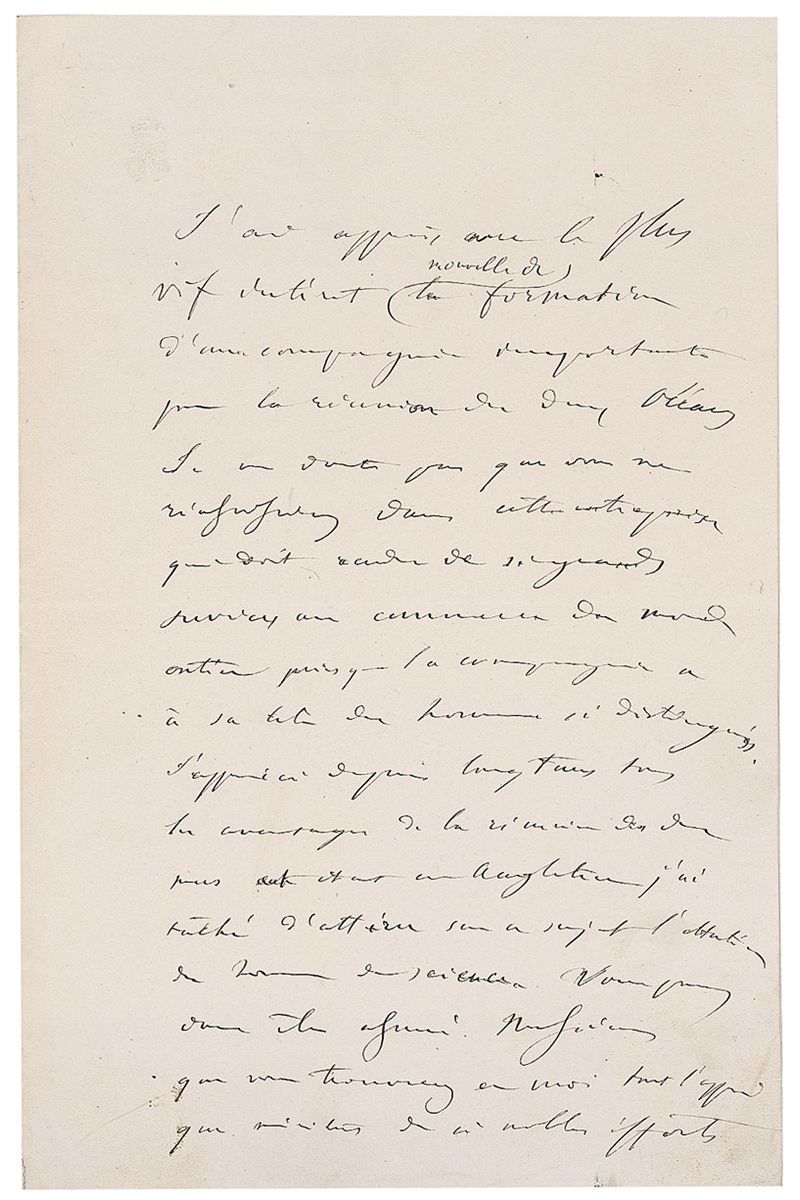 J'ai appris avec le plus
nouvelle de
vif intérêt la formation
d'une compagnie importante
pour la réunion des deux Océans
Je ne doute pas que vous ne
réussissiez dans cette entreprise
qui doit rendre de si grands
services au commerce du monde
entier puisque la compagnie a
à sa tête des hommes si distingués.
J'apprécie depuis longtems tous
les avantages de la réunion des deux
mers et étant en Angleterre j'ai
tâché d'attirer sur ce sujet l'attention
des hommes de science. Vous pouvez
donc être assuré Messieurs
que vous trouverez en moi tout l'appui
que méritent de si nobles efforts